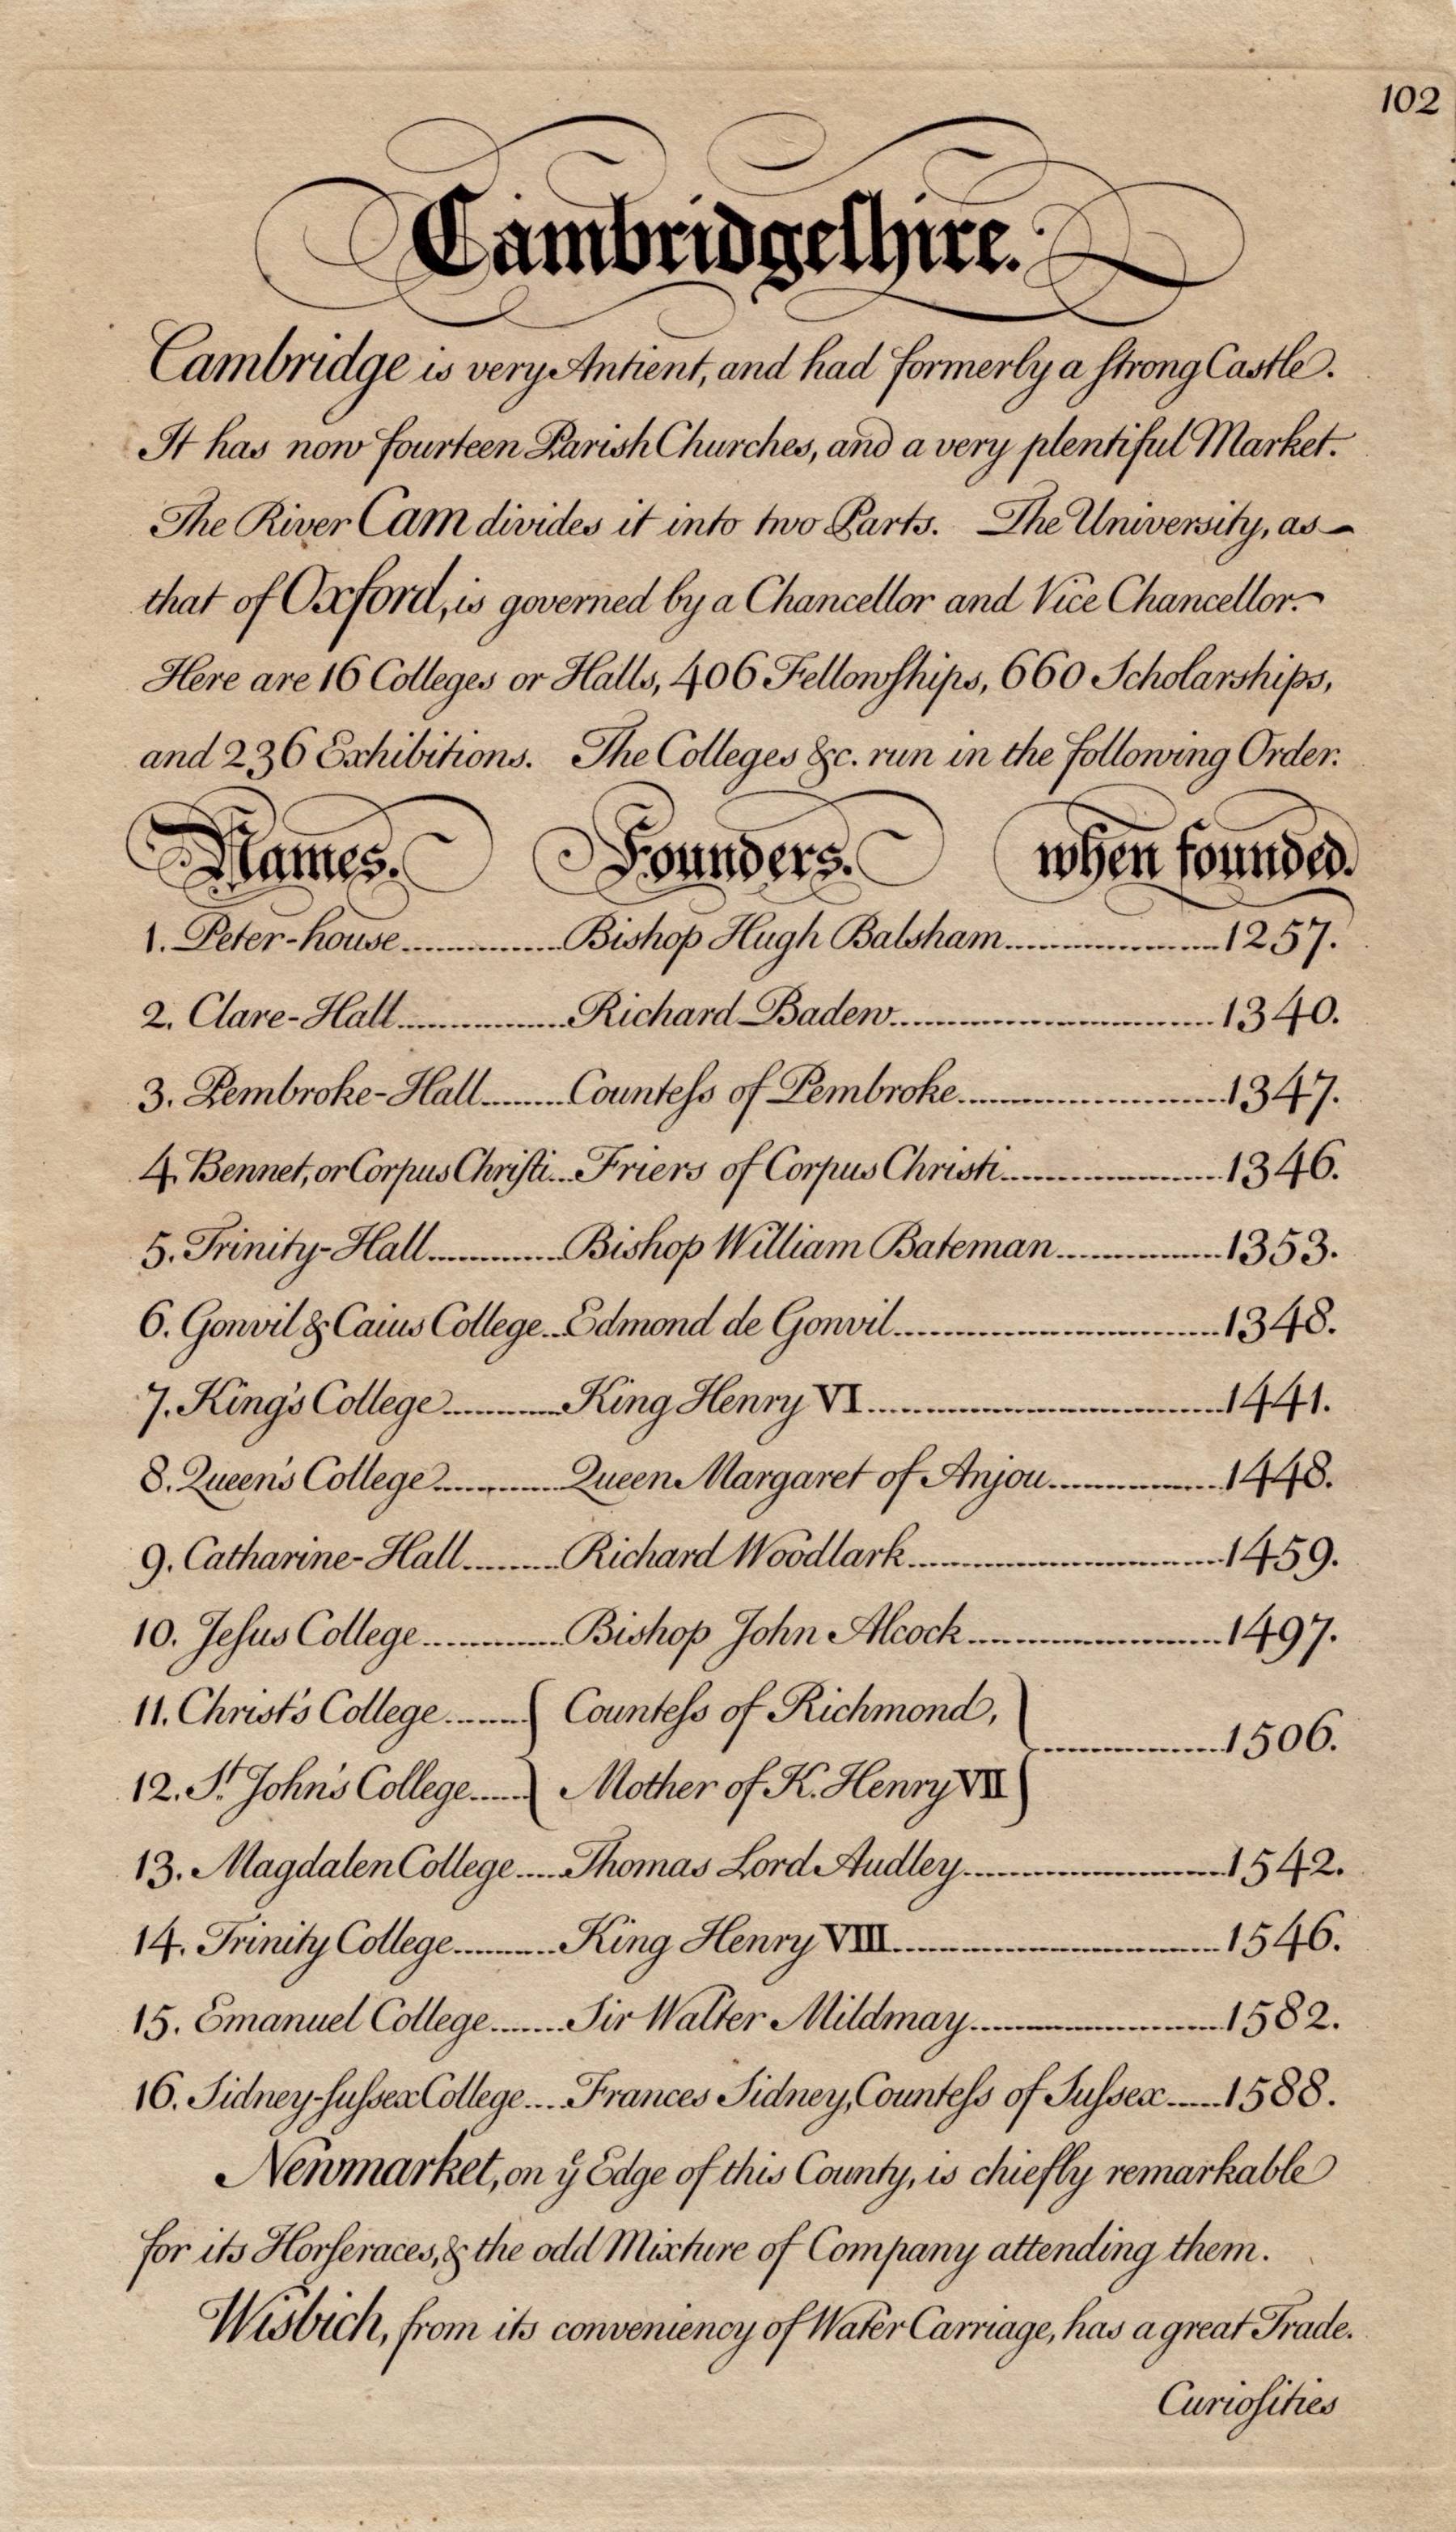 102
Cambridgeſhire.
Cambridge is very Antient, and had formerly a ſtrong Castle.
It has now fourteen Parish Churches, and a very plentiful Market.
The River Cam divides it into two Parts. The University, as
that of Oxford, is governed by a Chancellor and Vice Chancellor.
Here are 16 Colleges or Halls, 406 Fellowſhips, 660 Scholarships,
and 236 Exhibitions. The Colleges &c. run in the following Order.
Names. Founders. when founded.
1. Peter-house............Bishop Hugh Balsham............1257.
2. Clare-Hall............Richard Badew............1340.
3. Pembroke-Hall........Counteſs of Pembroke............1347.
4. Bennet, or Corpus Chriſti...Friers of Corpus Christi............1346.
5. Trinity-Hall............Bishop William Bateman............1353.
6. Gonvil & Caius College...Edmond de Gonvil............1348.
7. King's College............King Henry VI............1441.
8. Queen's College............Queen Margaret of Anjou............1448.
9. Catharine-Hall.........Richard Woodlark............1459.
10. Jeſus College............Bishop John Alcock............1497.
11. Christ's College........{ Counteſs of Richmond, }
............1506.
12. St. John's College......{ Mother of K. Henry VII }
13. Magdalen College.....Thomas Lord Audley............1542.
14. Trinity College..........King Henry VIII............1546.
15. Emanuel College.......Sir Walter Mildmay............1582.
16. Sidney-ſuſsex College....Frances Sidney, Counteſs of Suſsex......1588.
Newmarket, on ẙ Edge of this County, is chiefly remarkable
for its Horſeraces, & the odd Mixture of Company attending them.
Wisbich, from its conveniency of Water Carriage, has a great Trade.
Curioſities